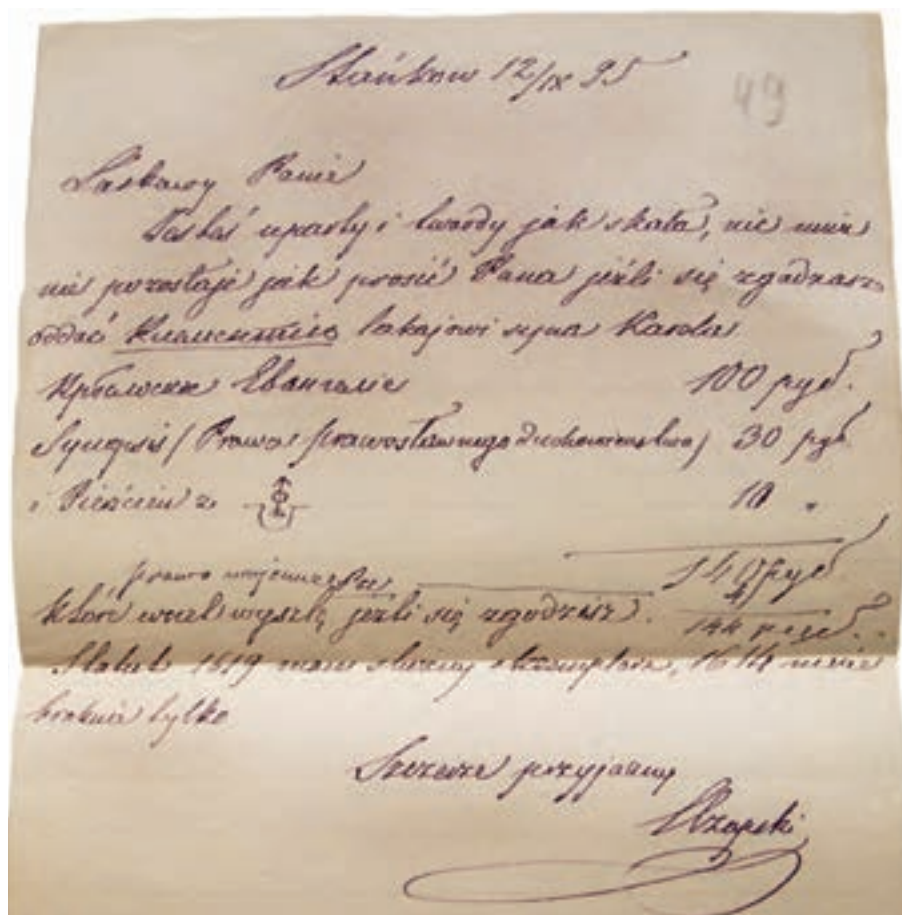 Stańkow 12/IX 95
49
Łaskawy Panie
Jesteś uparty i twardy jak skała, nic mnie
nie pozostaje jak prosić Pana jeźli się zgadzasz
oddać lokajowi syna Karola
100 руб.
Synopsis (Prawo prawosławnego Duchowieństwa) 30 руб.
i Pierścień z 10 "
140 руб
prawo wojenne 4
które wraz wyszlę jeźli się zgodzisz. 144 руб.
Statut 1619 mam śliczny exemplarz, 1614 mnie
brakuie tylko
Szczerze przyjazny
Czapski